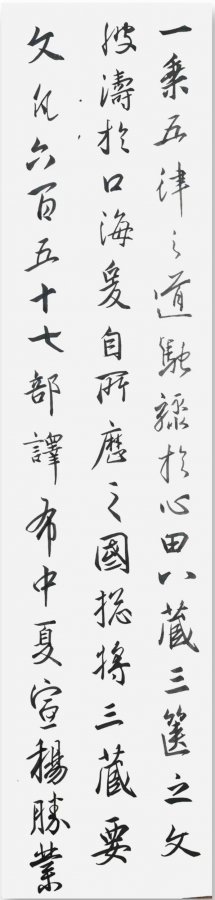 一乘五律之道馳驟於心田八藏三篋之文
波濤於口海爰自所歷之國揔將三藏要
文凡六百五十七部譯布中夏宣揚勝業